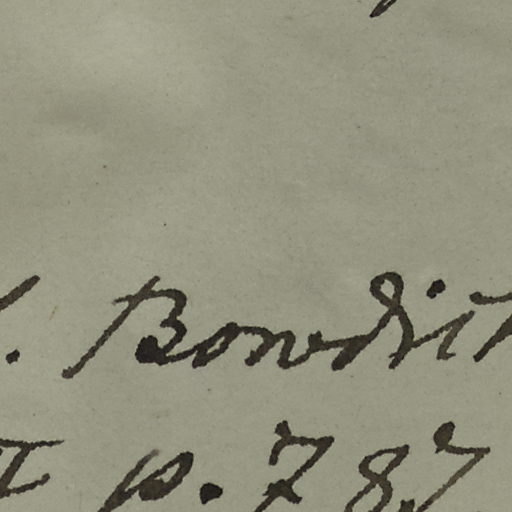 . Bowdit
I p. 787